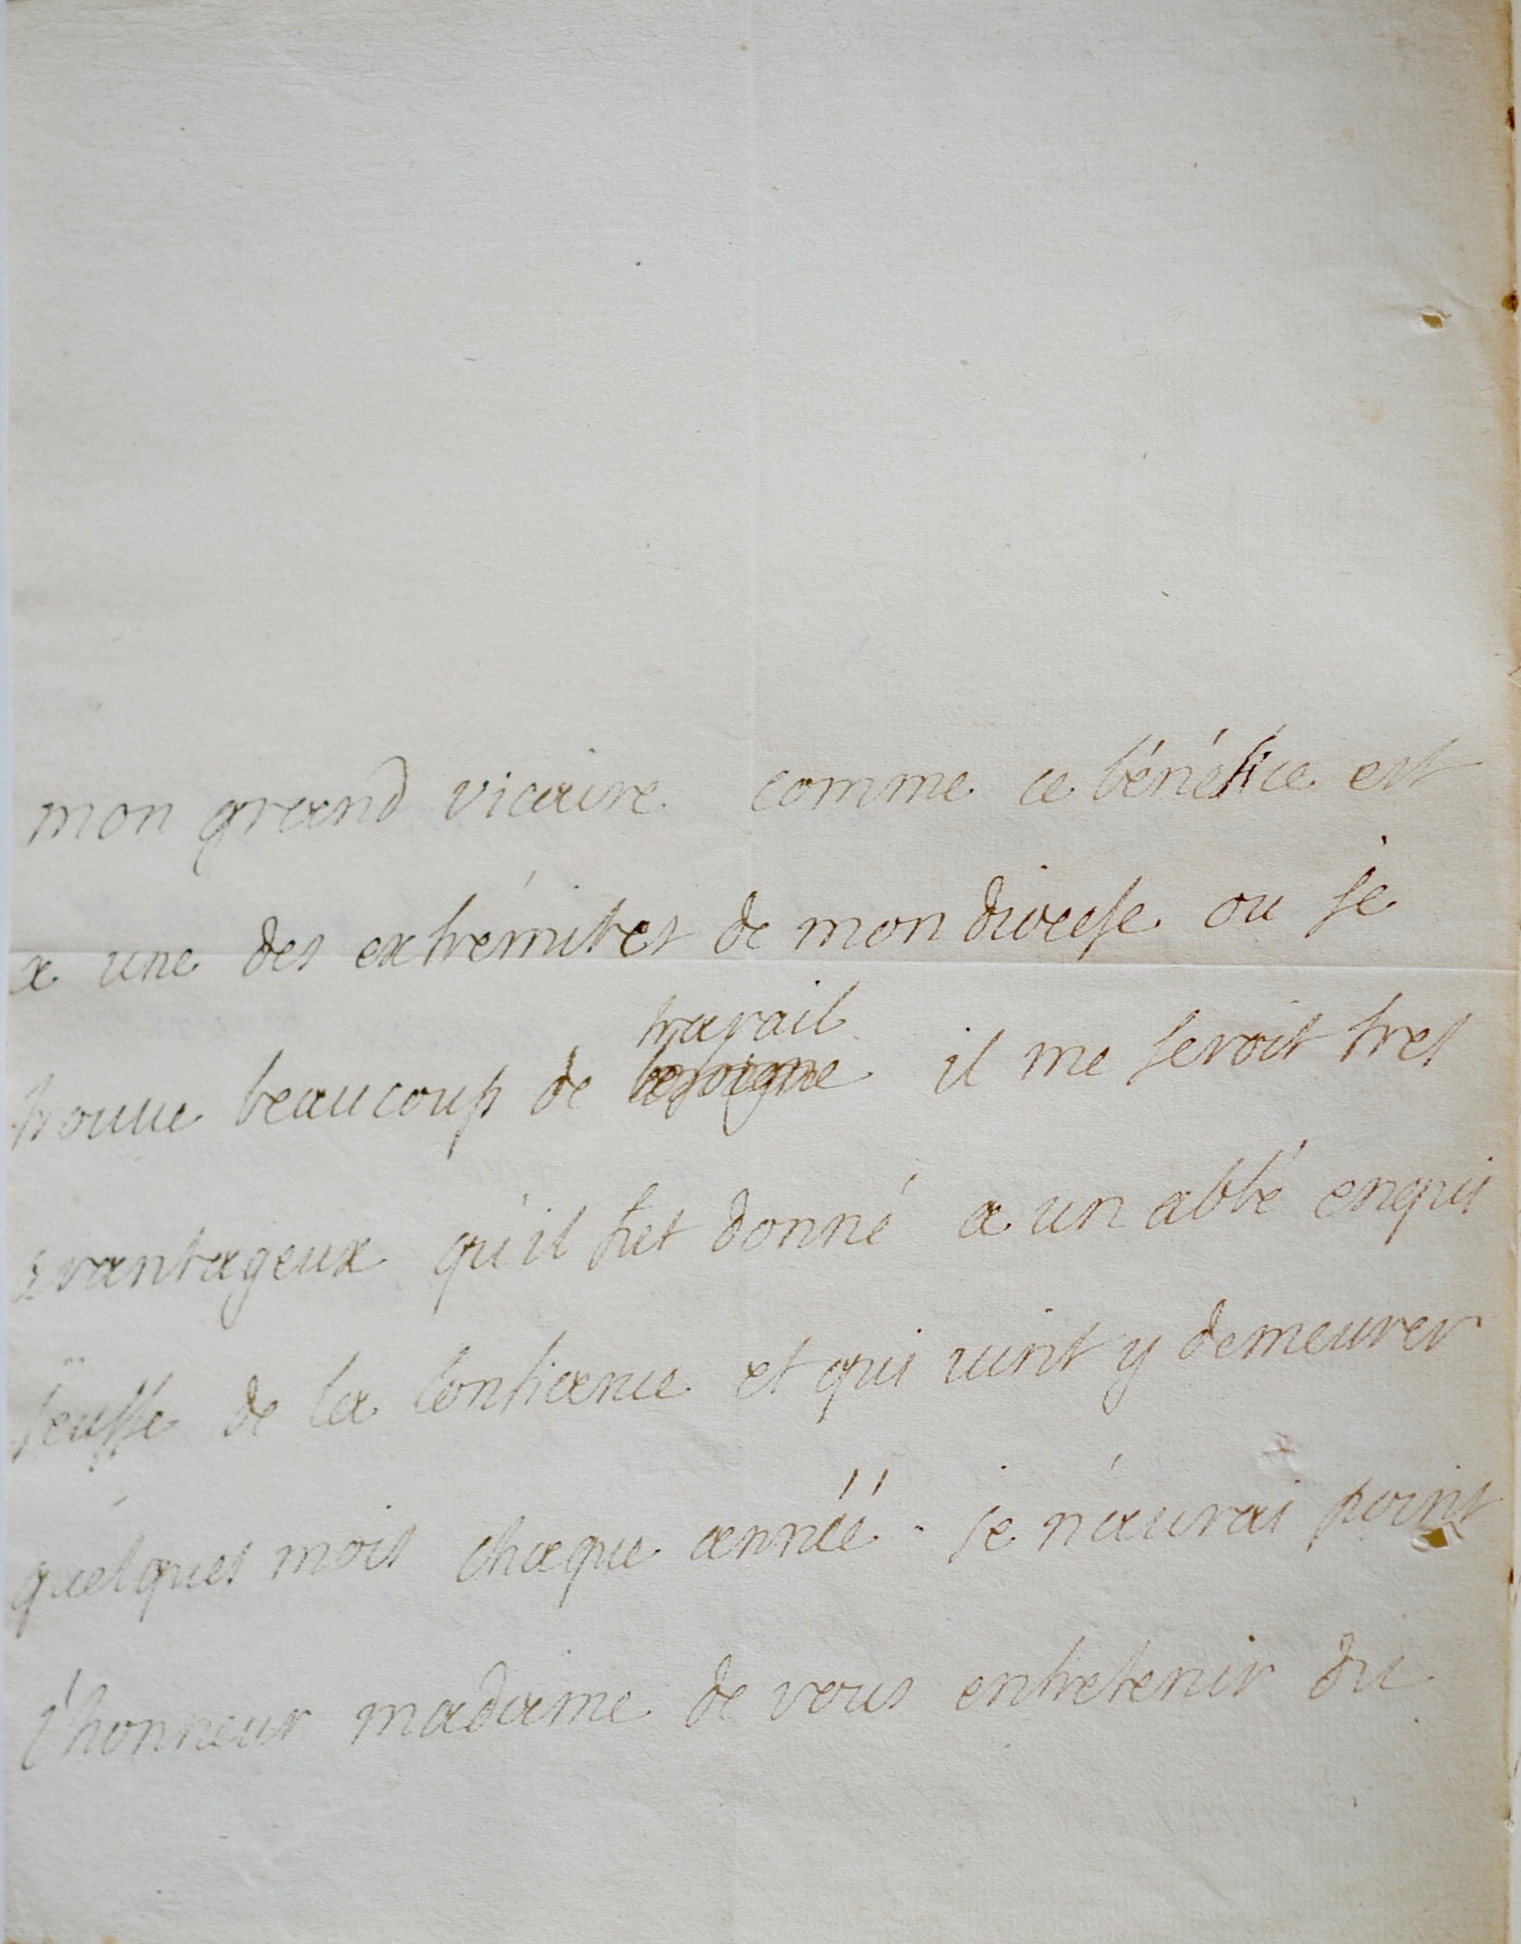 mon grand vicaire comme ce bénéfice est
a une des extrémites de mon diocese ou se
travail
trouve beaucoup de besoigne il me seroit tres
avantageux qu'il fut donné a un abbé enqui
j'eusse de la confiance et qui vint y demeurer
quelques mois chaque année. je n'aurai point
l'honneur madame de vous entretenir du